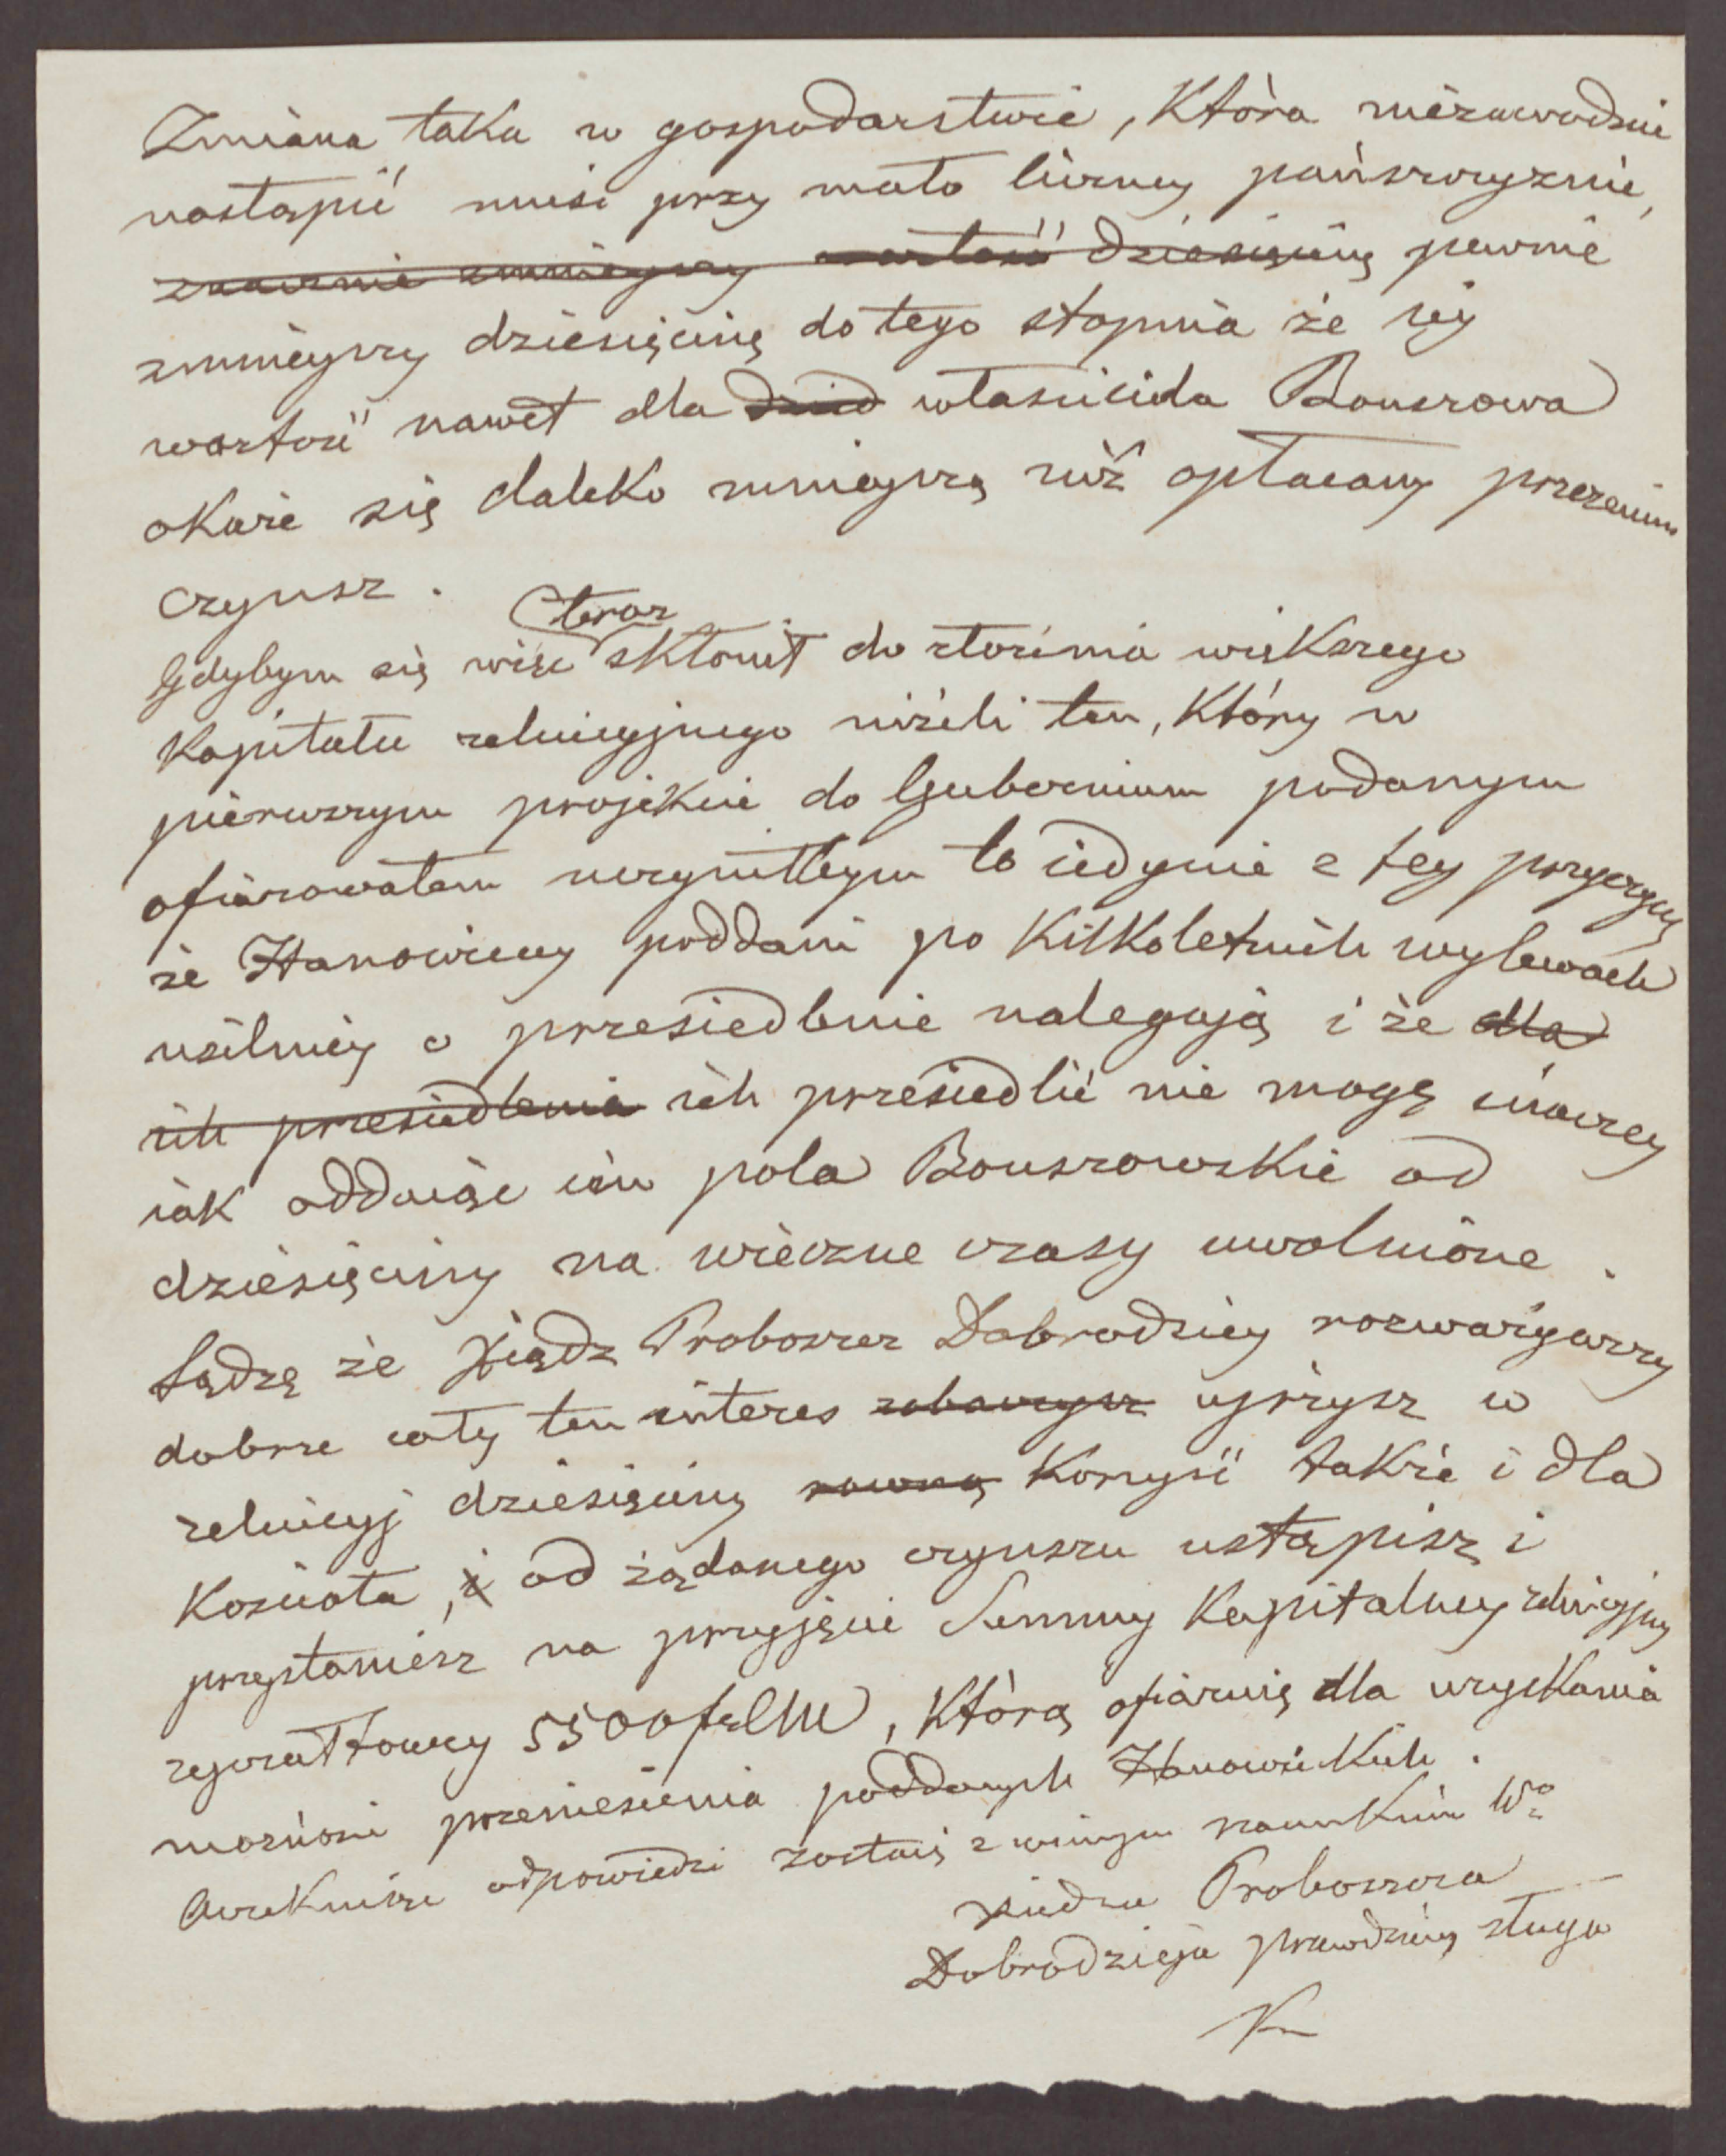 Zmiana taka w gospodarstwie, która niezawodnie
nastąpić musi przy mało liczney pańszczyznie,
znacznie zmnieyszy wartość dziesięciny pewnie
zmnieyszy dziesięcinę do tego stopnia że iey
wartość nawet dla dzied właściciela Bouszowa
okaże się daleko mnieyszą niż opłacany przezemnie
czynsz.
teraz
Gdybym się więc skłonił do złożenia większego
kapitału reluicyjnego niżeli ten, który w
pierwszym projekcie do Gubernium podanym
ofiarowałem uczyniłbym to iedynie z tey przyczyny
że Hanowieccy poddani po kilkoletnich wylewach
usilniey o przesiedlenie nalegają i że dla
ich przesiedlenia ich przesiedlić nie mogę inaczey
iak oddaiąc im pola Bouszowskie od
dziesięciny na wieczne czasy uwolnione.
Sądzę że Xiądz Proboszcz Dobrodziey rozważywszy
dobrze cały ten interes zobaczysz ujrzysz w
reluicyj dziesięciny równą korzyść także i dla
Kościoła, i od żądanego czynszu ustąpisz i
przystaniesz na przyjęcie Summy Kapitalney reluicyjney
ryczałtowey 5500 frCM, którą ofiaruię dla uzyskania
możności przeniesienia poddanych Hanowieckich.
Oczekuiąc odpowiedzi zostaię z winnym szacunkiem Wo
Xiedza Proboszcza
Dobrodzieja prawdziwy sługa
K